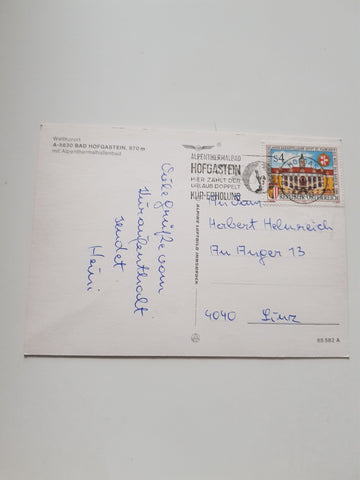 Weltkurort
A-5630 BAD HOFGASTEIN, 870 m
mit Alpenthermalhallenbad
Liebe Grüße vom
Kuraufenthalt
sendet
Heini
ALPENTHERMALBAD
HOFGASTEIN
HIER ZÄHLT DER
URLAUB DOPPELT
KUR-ERHOLUNG
S4
REPUBLIK ÖSTERREICH
ALPINE LUFTBILD INNSBRUCK
Herbert Heinreich
An Anger 13
4040 Linz
65 582 A